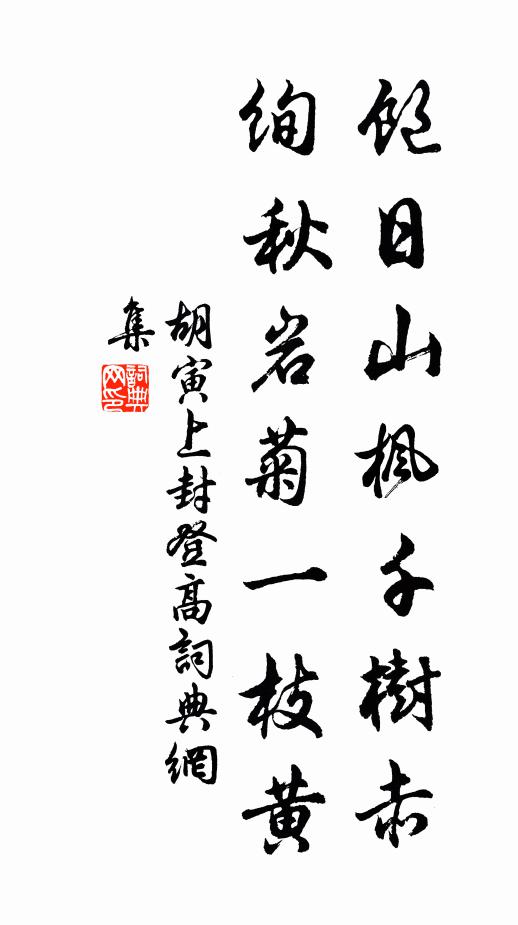 飽日山楓千樹赤
絢秋岩菊一枝黃
胡寅上封登高詞典網
集
詞典
网印